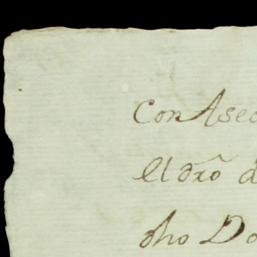 Con Ased
El dr̃o d
dho Do